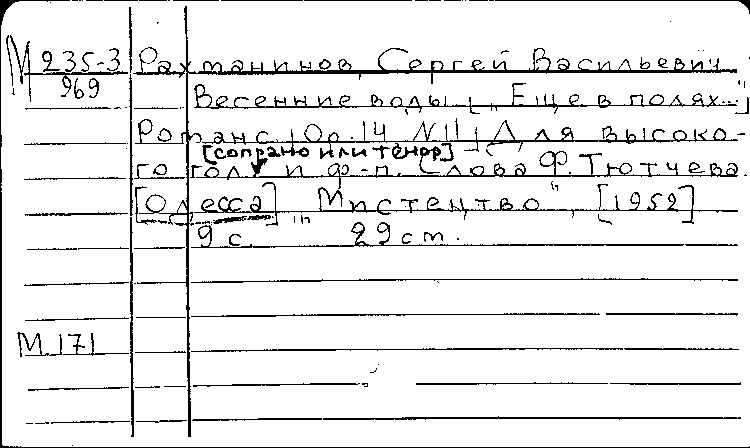 М 235-3 Рахманинов, Сергей Васильевич
969
Весенние воды [„Еще в полях..."]
Романс. Ор. 14 № 11. Для высоко-
[сопрано или тенор]
го гол. и ф-п. Слова Ф. Тютчева.
[Одесса], „Мистецтво", [1952]
9 с. 29 см.
М 171